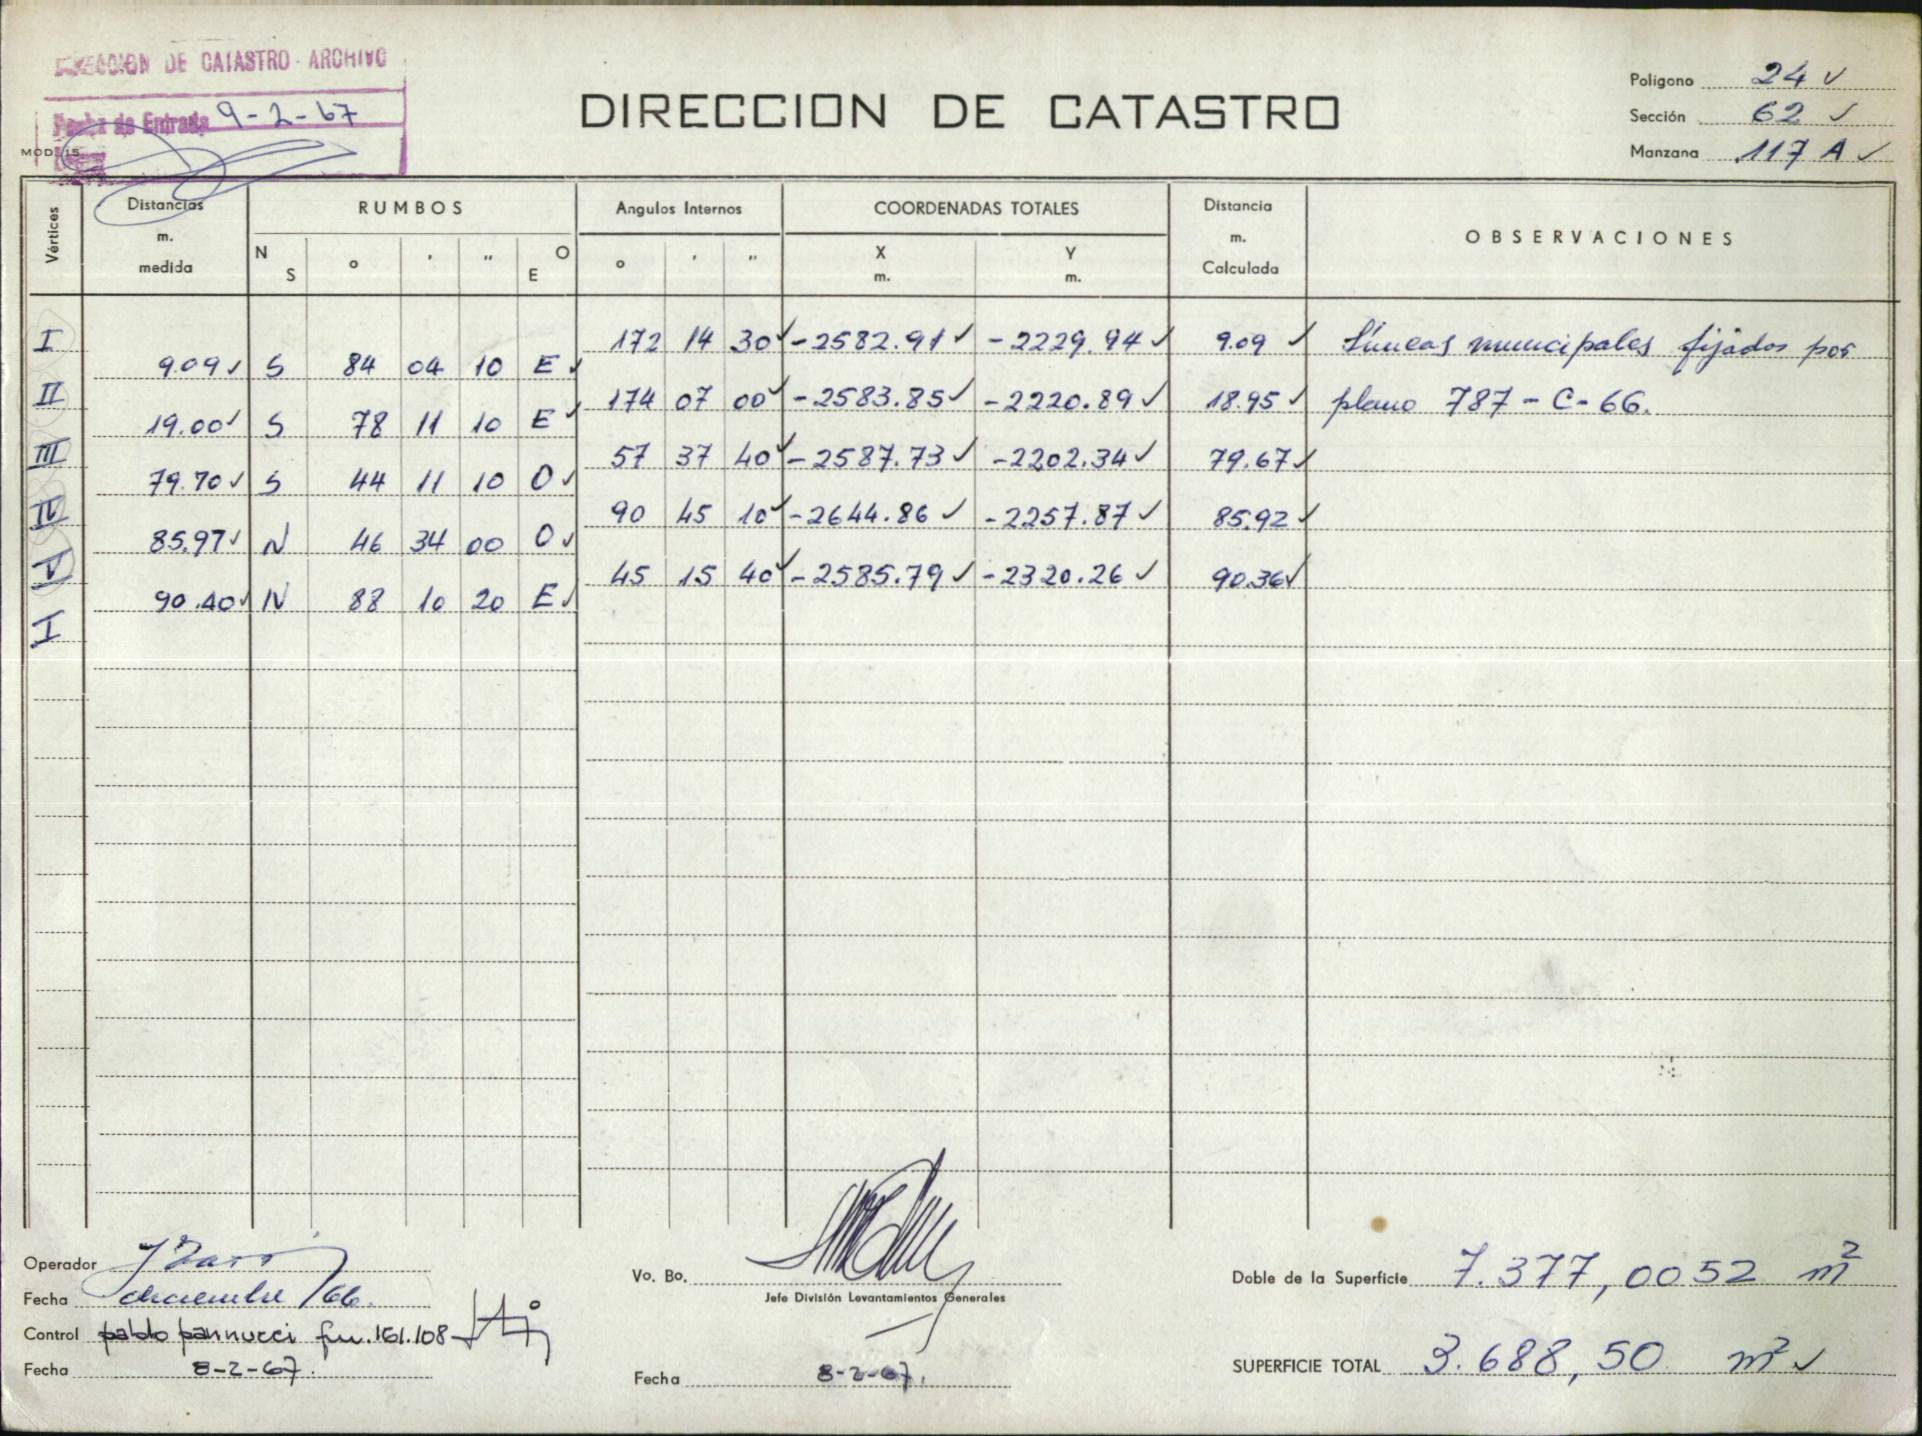 DIRECCION DE CATASTRO - ARCHIVO
Fecha de Entrada 9-2-67
MOD. 15
DIRECCION DE CATASTRO
Polígono 24 ✓
Sección 62 ✓
Manzana 117 A ✓
Vértices Distancias m. medida RUMBOS Angulos Internos COORDENADAS TOTALES Distancia m. Calculada OBSERVACIONES
N S ° ' " O E ° ' " X m. Y m.
I 172 14 30 ✓ -2582.91 ✓ -2229.94 ✓ 9.09 ✓ Líneas municipales fijados por
9.09 ✓ S 84 04 10 E ✓
II 174 07 00 ✓ -2583.85 ✓ -2220.89 ✓ 18.95 ✓ plano 787-C-66.
19.00 ✓ S 78 11 10 E ✓
III 57 37 40 ✓ -2587.73 ✓ -2202.34 ✓ 79.67 ✓
79.70 ✓ S 44 11 10 O ✓
IV 90 45 10 ✓ -2644.86 ✓ -2257.87 ✓ 85.92 ✓
85.97 ✓ N 46 34 00 O ✓
V 45 15 40 ✓ -2585.79 ✓ -2320.26 ✓ 90.36 ✓
90.40 ✓ N 88 10 20 E ✓
I
Operador
Fecha diciembre /66.
Control pablo pannucci fm. 161.108
Fecha 8-2-67.
Vo. Bo.
Jefe División Levantamientos Generales
Fecha 8-2-67.
Doble de la Superficie 7.377,0052 m²
SUPERFICIE TOTAL 3.688,50 m² ✓